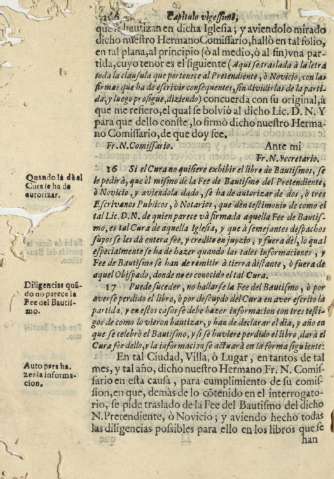 Capitulo vigessimo,
que se bautizan en dicha Iglesia; y aviendolo mirado
dicho nuestro Hermano Comissario, hallò en tal folio,
en tal plana, al principio (ò al medio, ò al fin) vna par-
tida, cuyo tenor es el siguiente (Aqui se traslada à la letra
toda la clausula que pertenece al Pretendiente, ò Novicio, con las
firmas que ha de escrivir consequentes, sin dividirlas de la parti-
da, y luego prosigue, diziendo) concuerda con su original, à
que me refiero, el qual se bolviò al dicho Lic. D. N. Y
para que dello conste, lo firmò dicho nuestro Herma-
no Comissario, de que doy fee.
Fr. N. Comissario. Ante mi
Fr. N. Secretario.
Quando la dà el
Cura se ha de
autorizar.
16 Si el Cura no quisiere exhibir el libro de Bautismos, se
le pedirà, que èl mismo dè la Fee del Bautismo del Pretendiente,
ò Novicio, y aviendola dado, se ha de autorizar de dos, ò tres
Escrivanos Publicos, ò Notarios, que dèn testimonio de como el
tal Lic. D. N. de quien parece và firmada aquella Fee de Bautis-
mo, es tal Cura de aquella Iglesia, y que à semejantes despachos
suyos se les dà entera fee, y credito en juyzio, y fuera dèl, lo qual
especialmente se ha de hazer quando las tales informaciones, y
Fee de Bautismo se han de remitir à tierra distante, ò fuera de
aquel Obispado, donde no es conocido el tal Cura.
Diligencias quã-
do no parece la
Fee del Bautis-
mo.
17 Puede suceder, no hallarse la Fee del Bautismo, ò por
averse perdido el libro, ò por descuydo del Cura en aver escrito la
partida, y en estos casos se debe hazer informacion con tres testi-
gos de como lo vieron bautizar, y han de declarar el dia, y año en
que se celebrò el Bautismo, y si se huviere perdido el libro, darà el
Cura fee dello, y la informacion se actuarà en la forma siguiente:
Auto para ha-
zer la informa-
cion.
En tal Ciudad, Villa, ò Lugar, en tantos de tal
mes, y tal año, dicho nuestro Hermano Fr. N. Comis-
sario en esta causa, para cumplimiento de su comis-
sion, en que, demàs de lo côtenido en el interrogato-
rio, se pide traslado de la Fee del Bautismo del dicho
N. Pretendiente, ò Novicio; y aviendo hecho todas
las diligencias possibles para ello en los libros que se
han